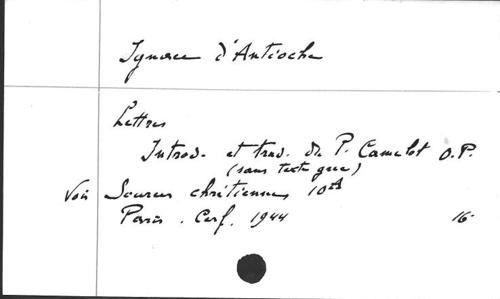 Ignace d'Antioche
Lettres
Introd. et trad. de P. Camelot O.P.
(sans texte grec)
Voir Sources chrétiennes 10
Paris. Cerf. 1944 16